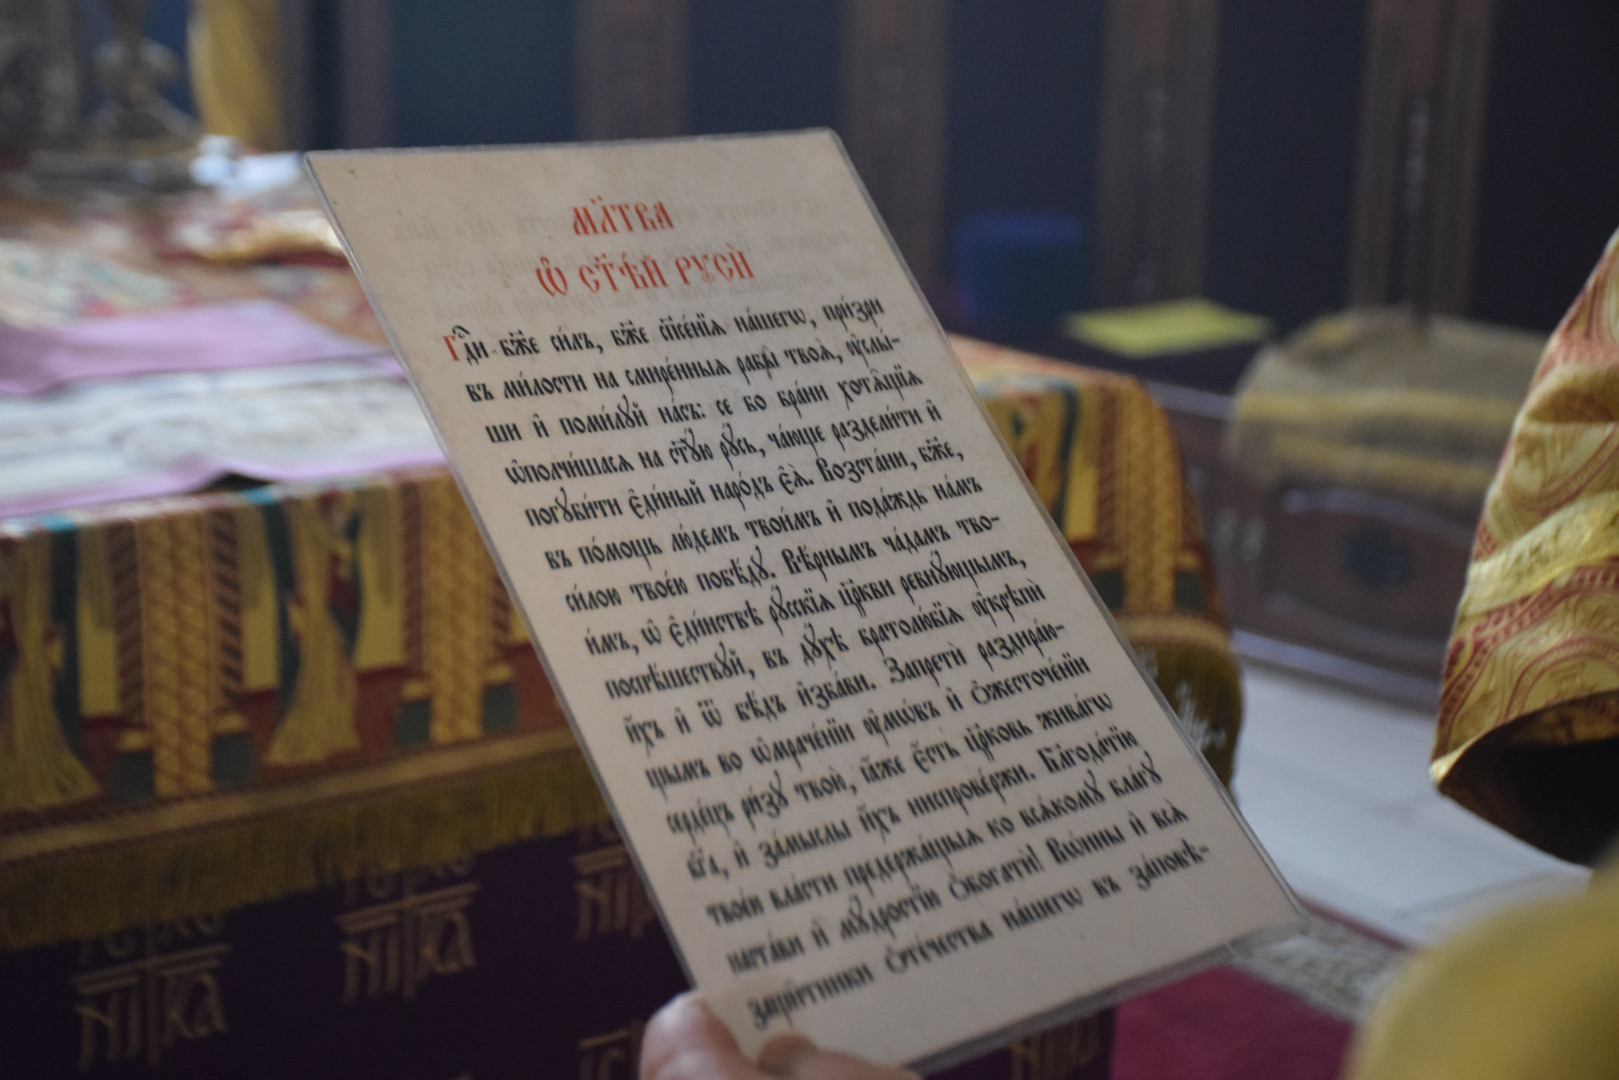 МЛ҃ТВА
Ѡ҆ СТ҃ѢЙ РꙋСЍ
Гдⷭ҇и бж҃е си́лъ, бж҃е сп҃се́нїѧ на́шегѡ, при́зри
въ ми́лости на смире́нныѧ рабы̑ твоѧ̀, ᲂу҆слы-
ши и҆ поми́лꙋй на́съ: се бо бра́ни хотѧ́щїи
ѡ҆полчи́шасѧ на ст҃ꙋ́ю рꙋ́сь, ча́юще раздели́ти и҆
погꙋби́ти є҆ди́ный наро́дъ є҆ѧ̀. Возста́ни, бж҃е,
въ по́мощь лю́демъ твои̑мъ и҆ пода́ждь на́мъ
си́лою твое́ю побѣ́дꙋ. Вѣ̑рнымъ ча́дамъ тво-
и̑мъ, ѡ҆ є҆ди́нствѣ рꙋ́сскїѧ цр҃кви ревнꙋ́ющымъ,
поспѣ́шествꙋй, въ дꙋ́хѣ братолю́бїѧ ᲂу҆крѣпѝ
и҆̀хъ и҆ ѿ бѣ́дъ и҆зба́ви. Запретѝ раздира́ю-
щымъ во ѡ҆мраче́нїи ᲂу҆мѡ́въ и҆ ѡ҆жесточе́нїи
серде́цъ ри́зꙋ твою̀, ꙗ҆́же є҆́сть цр҃ковь жива́гѡ
бг҃а, и҆ за́мыслы и҆́хъ ниспрове́ржи. Бл҃года́тїю
твое́ю вла́сти предержа́щыѧ ко всѧ́комꙋ бла́гꙋ
наста́ви и҆ мꙋ́дростїю ѡ҆богатѝ! Вѡ́ины и҆ всѧ̑
защи́тники ѻ҆те́чества на́шегѡ въ за́повѣ-